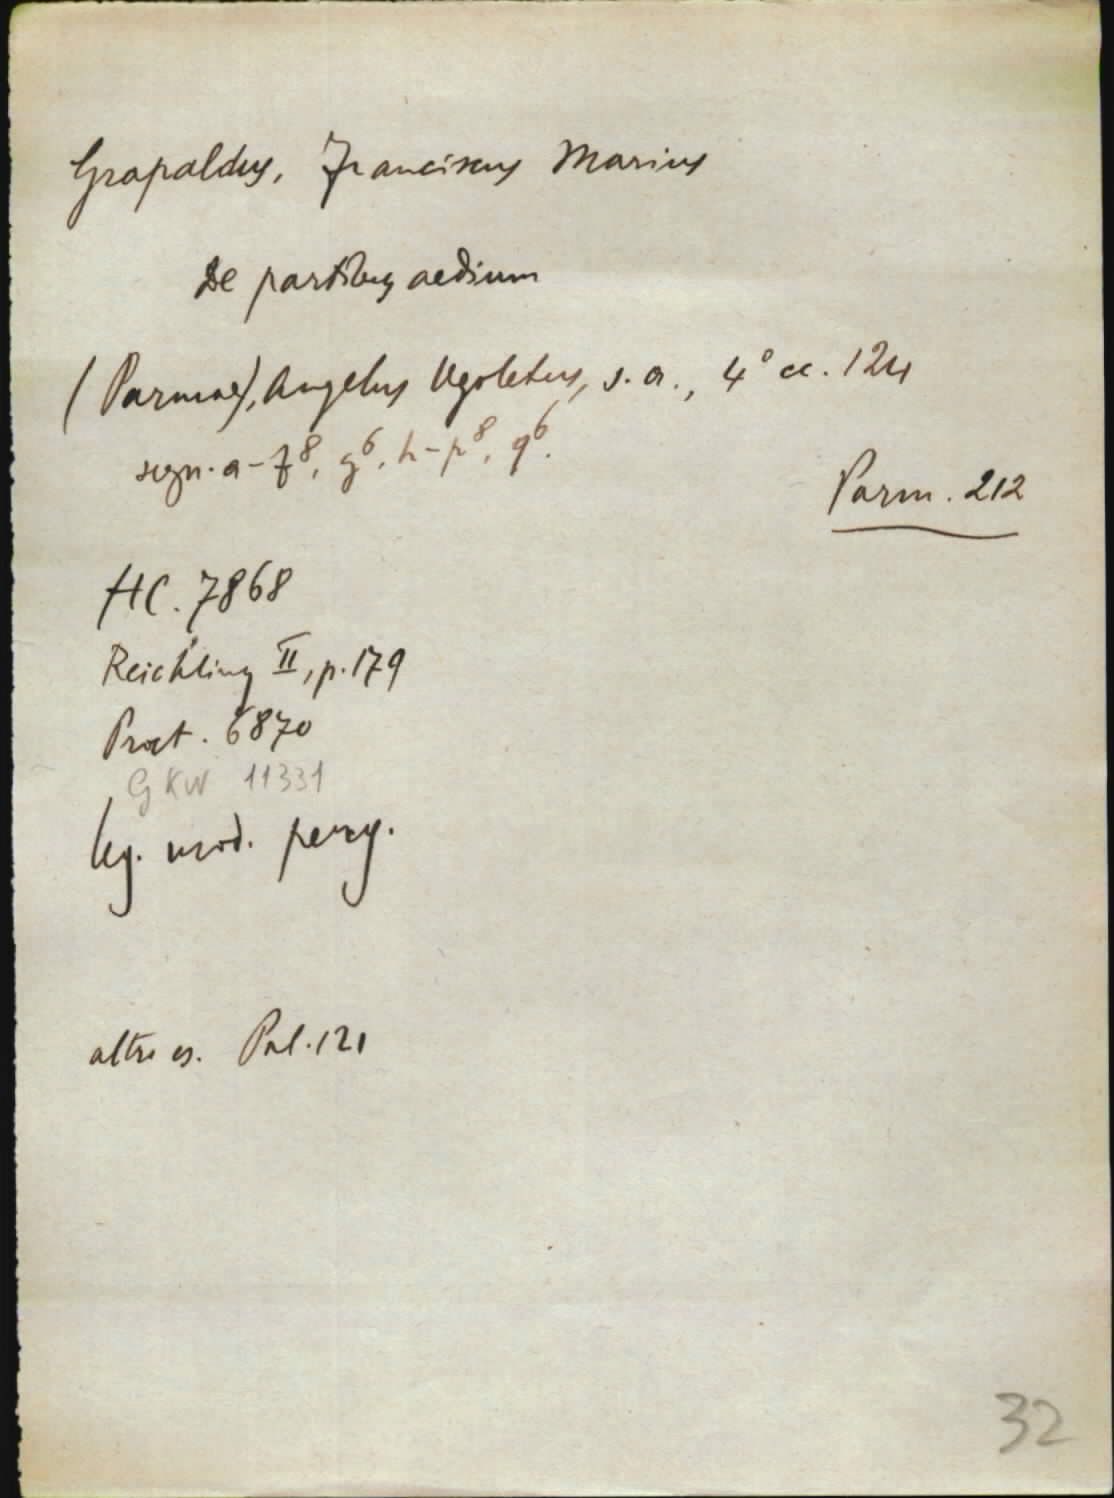 Grapaldus, Franciscus Marius
De partibus aedium
(Parmae), Angelus Ugoletus, s. a., 4° cc. 124
segn. a-f⁸, g⁶, h-p⁸, q⁶.
Parm. 212
HC. 7868
Reichling II, p. 179
Proct. 6870
GKW 11331
leg. mod. perg.
altro es. Pal. 121
32